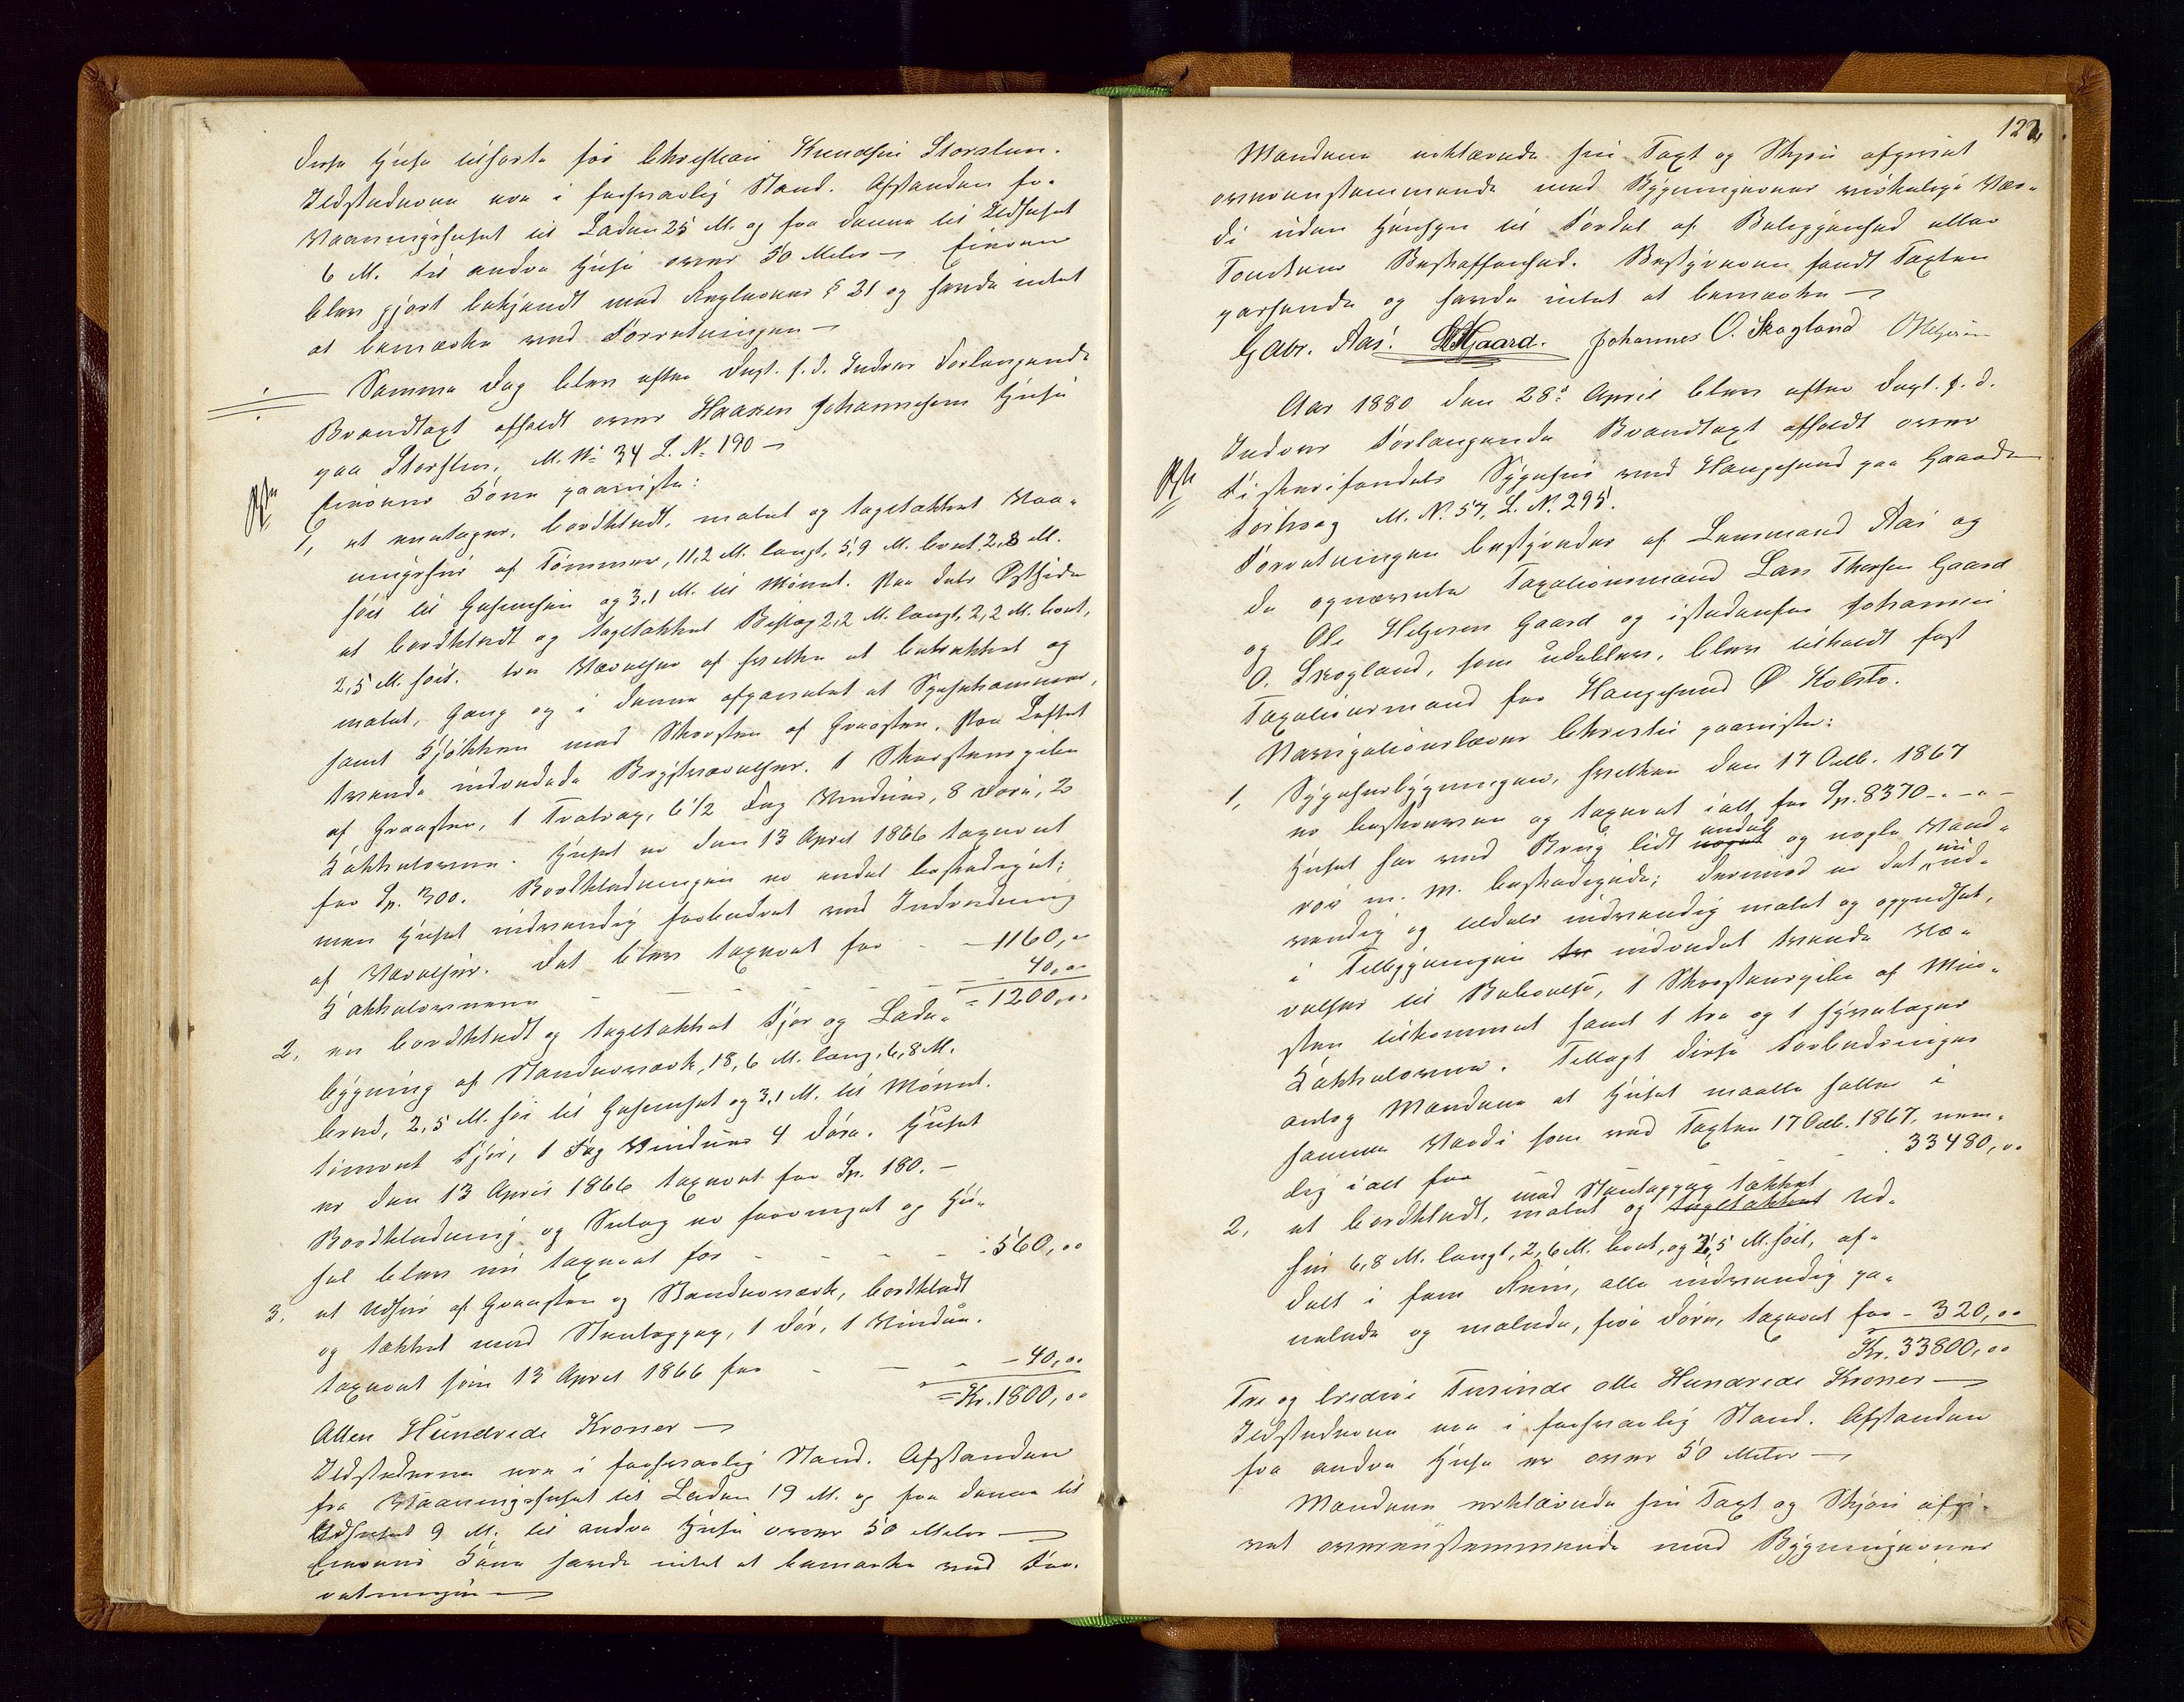 disse Huse tilhøre før Christian Knudsen Storsten.
Ildstederne ere i forsvarlig Stand. Afstanden fr.
Vaaningshuset til Laden 25 M. og fra denne til Ildhuset
6 M. til andre Huse over 50 Meter — Eieren
blev gjort bekjendt med Reglernes § 31 og havde intet
at bemærke ved Forretningen —
Samme Dag blev efter Dagl. f. d. Indres Forlangende
Brandtaxt afholdt over Haaken Johannesens Huse
paa Storsten, M. No 34 L. No 190 —
Eierens Søn paaviste:
1, et enetages, bordklædt, malet og tagtækket Vaa-
ningshus af Tømmer, 11,2 M. langt, 5,9 M. bredt, 2,8 M.
høit til Gesimsen og 3,1 M. til Mønnet. Paa dets Østside
et bordklædt og tagtækket Bislag 2,2 M. langt, 2,2 M. bredt,
2,5 M. høit. tre Værelser af hvilke et betrækket og
malet, Gang og i denne afpanelet et Spisekammer,
samt Kjøkken med Skorsten af Graasten. Paa Loftet
tvende indredede Brystværelser. 1 Skorstenspibe
af Graasten, 1 Løftrap, 6 1/2 Fag Vinduer, 8 Døre, 2
Kakkelovne. Huset er den 13 April 1866 taxeret
for Sp. 300. Bordklædningen er endel beskadiget;
men Huset indvendig forbedret ved Indredning
af Værelser. Det blev taxeret for - - 1160,00
Kakkelovnene - - - - - 40,00
= 1200,00
2. en bordklædt og tagtækket Fjøs og Lade-
bygning af Standerværk, 18,6 M. lang, 6,8 M.
bred, 2,5 M. høi til Gesimset og 3,1 M. til Mønnet.
tømret Fjøs, 1 Fag Vinduer 4 Døre. Huset
er den 13 April 1866 taxeret for Sp. 180. —
Bordklædning og Sutag er fornyet og Hu-
set blev nu taxeret for - - - - 560,00
3. et Udhus af Graasten og Standerværk, bordklædt
og tækket med Stentagpap, 1 Dør, 1 Vindue.
taxeret som 13 April 1866 for - - - - 40,00
= Kr. 1800,00
Atten Hundrede Kroner —
Ildstederne ere i forsvarlig Stand. Afstanden
fra Vaaningshuset til Laden 19 M. og fra denne til
Udhuset 9 M. til andre Huse over 50 Meter —
Eierens Søn havde intet at bemærke ved For-
retningen —
122
Mændene erklærede sin Taxt og Skjøn afgivet
overensstemmende med Bygningernes virkelige Vær-
di uden Hensyn til Fordel af Beliggenhed eller
Tomtens Beskaffenhed. Bestyreren fandt Taxten
passende og havde intet at bemærke —
Gabr. Aas. LTGaard. Johannes O. Skogland OHelgesen
Aar 1880 den 28de April blev efter Dagl. f. d.
Indres Forlangende Brandtaxt afholdt over
Fiskerifondets Sygehus ved Haugesund paa Gaarden
Førlvaag M. No. 57, L. No. 295.
Forretningen bestyredes af Lensmand Aas og
de opnævnte Taxationsmænd Lars Thorsen Gaard
og Ole Helgesen Gaard og istedenfor Johannes
O. Skogland, som udeblev, blev tilkaldt fast
Taxationsmand for Haugesund O Kolstø.
Navigationslærer Christie paaviste:
1, Sygehusbygningen, hvilken den 17 Octb. 1867
er beskreven og taxeret ialt for Sp. 8370 - - -
Huset har ved Brug lidt noget endel og nogle Vand-
rør m. M. beskadigede; dermod er det nu ud-
vendig og tildels indvendig malet og oppudset,
i Tilbygningen er indredet tvende Væ-
relser til Beboelse, 1 Skorstenspibe af Mur-
sten tilkommet samt 1 tre og 1 fyretages
Kakkelovne. Tillagt disse Forbedringer
antog Mændene at Huset maatte holde i
samme Værdi som ved Taxten 17 Octb. 1867, nem-
lig ialt for - - - 33480,00
2, et bordklædt, malet og tagtækket med Stentagpap tækket Ud-
hus 6,8 M. langt, 2,6 M. bredt, og 2,5 M. høit, af-
delt i fem Rum, alle indvendig pa-
nelede og malede, fire Døre, taxeret for - 320,00
Kr. 33800,00
Tre og tredive Tusinde otte Hundrede Kroner —
Ildstederne ere i forsvarlig Stand. Afstanden
fra andre Huse er over 50 Meter —
Mændene erklærede sin Taxt og Skjøn afgi-
vet overensstemmende med Bygningernes